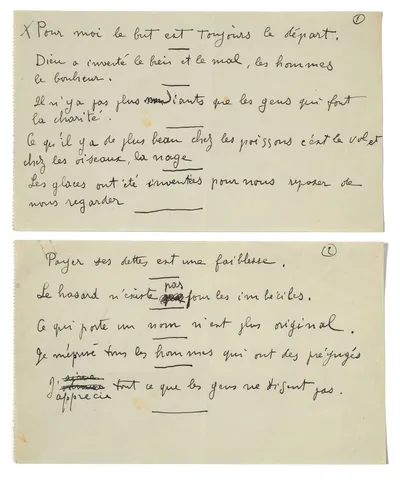 ①
X Pour moi le but est toujours le départ.
Dieu a inventé le bien et le mal, les hommes
le bonheur.
Il n'y a pas plus mendiants que les gens qui font
la charité.
Ce qu'il y a de plus beau chez les poissons c'est le vol et
chez les oiseaux, la nage
Les glaces ont été inventées pour nous reposer de
nous regarder
②
Payer ses dettes est une faiblesse.
Le hasard n'existe pas pour les imbéciles.
Ce qui porte un nom n'est plus original.
Je méprise tous les hommes qui ont des préjugés
J'apprécie tout ce que les gens ne disent pas.